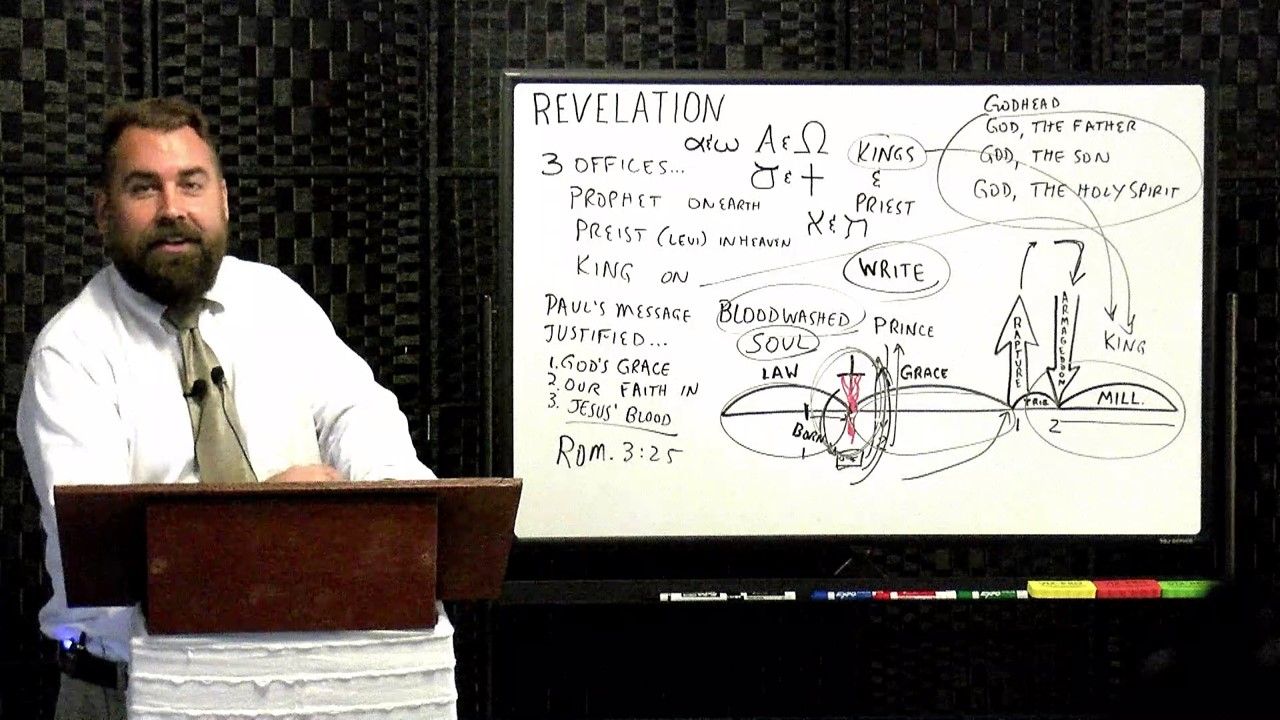 REVELATION
α&ω A&Ω
ŏ & †
א & ת
3 OFFICES...
PROPHET ON EARTH
PREIST (LEVI) IN HEAVEN
KING ON
PAUL'S MESSAGE
JUSTIFIED...
1. GOD'S GRACE
2. OUR FAITH IN
3. JESUS' BLOOD
ROM. 3:25
KINGS
&
PRIEST
WRITE
GODHEAD
GOD, THE FATHER
GOD, THE SON
GOD, THE HOLY SPIRIT
BLOODWASHED
SOUL
PRINCE
LAW
GRACE
BORN
RAPTURE
ARMAGEDDON
KING
TRIB
MILL.
1 2
EXPO